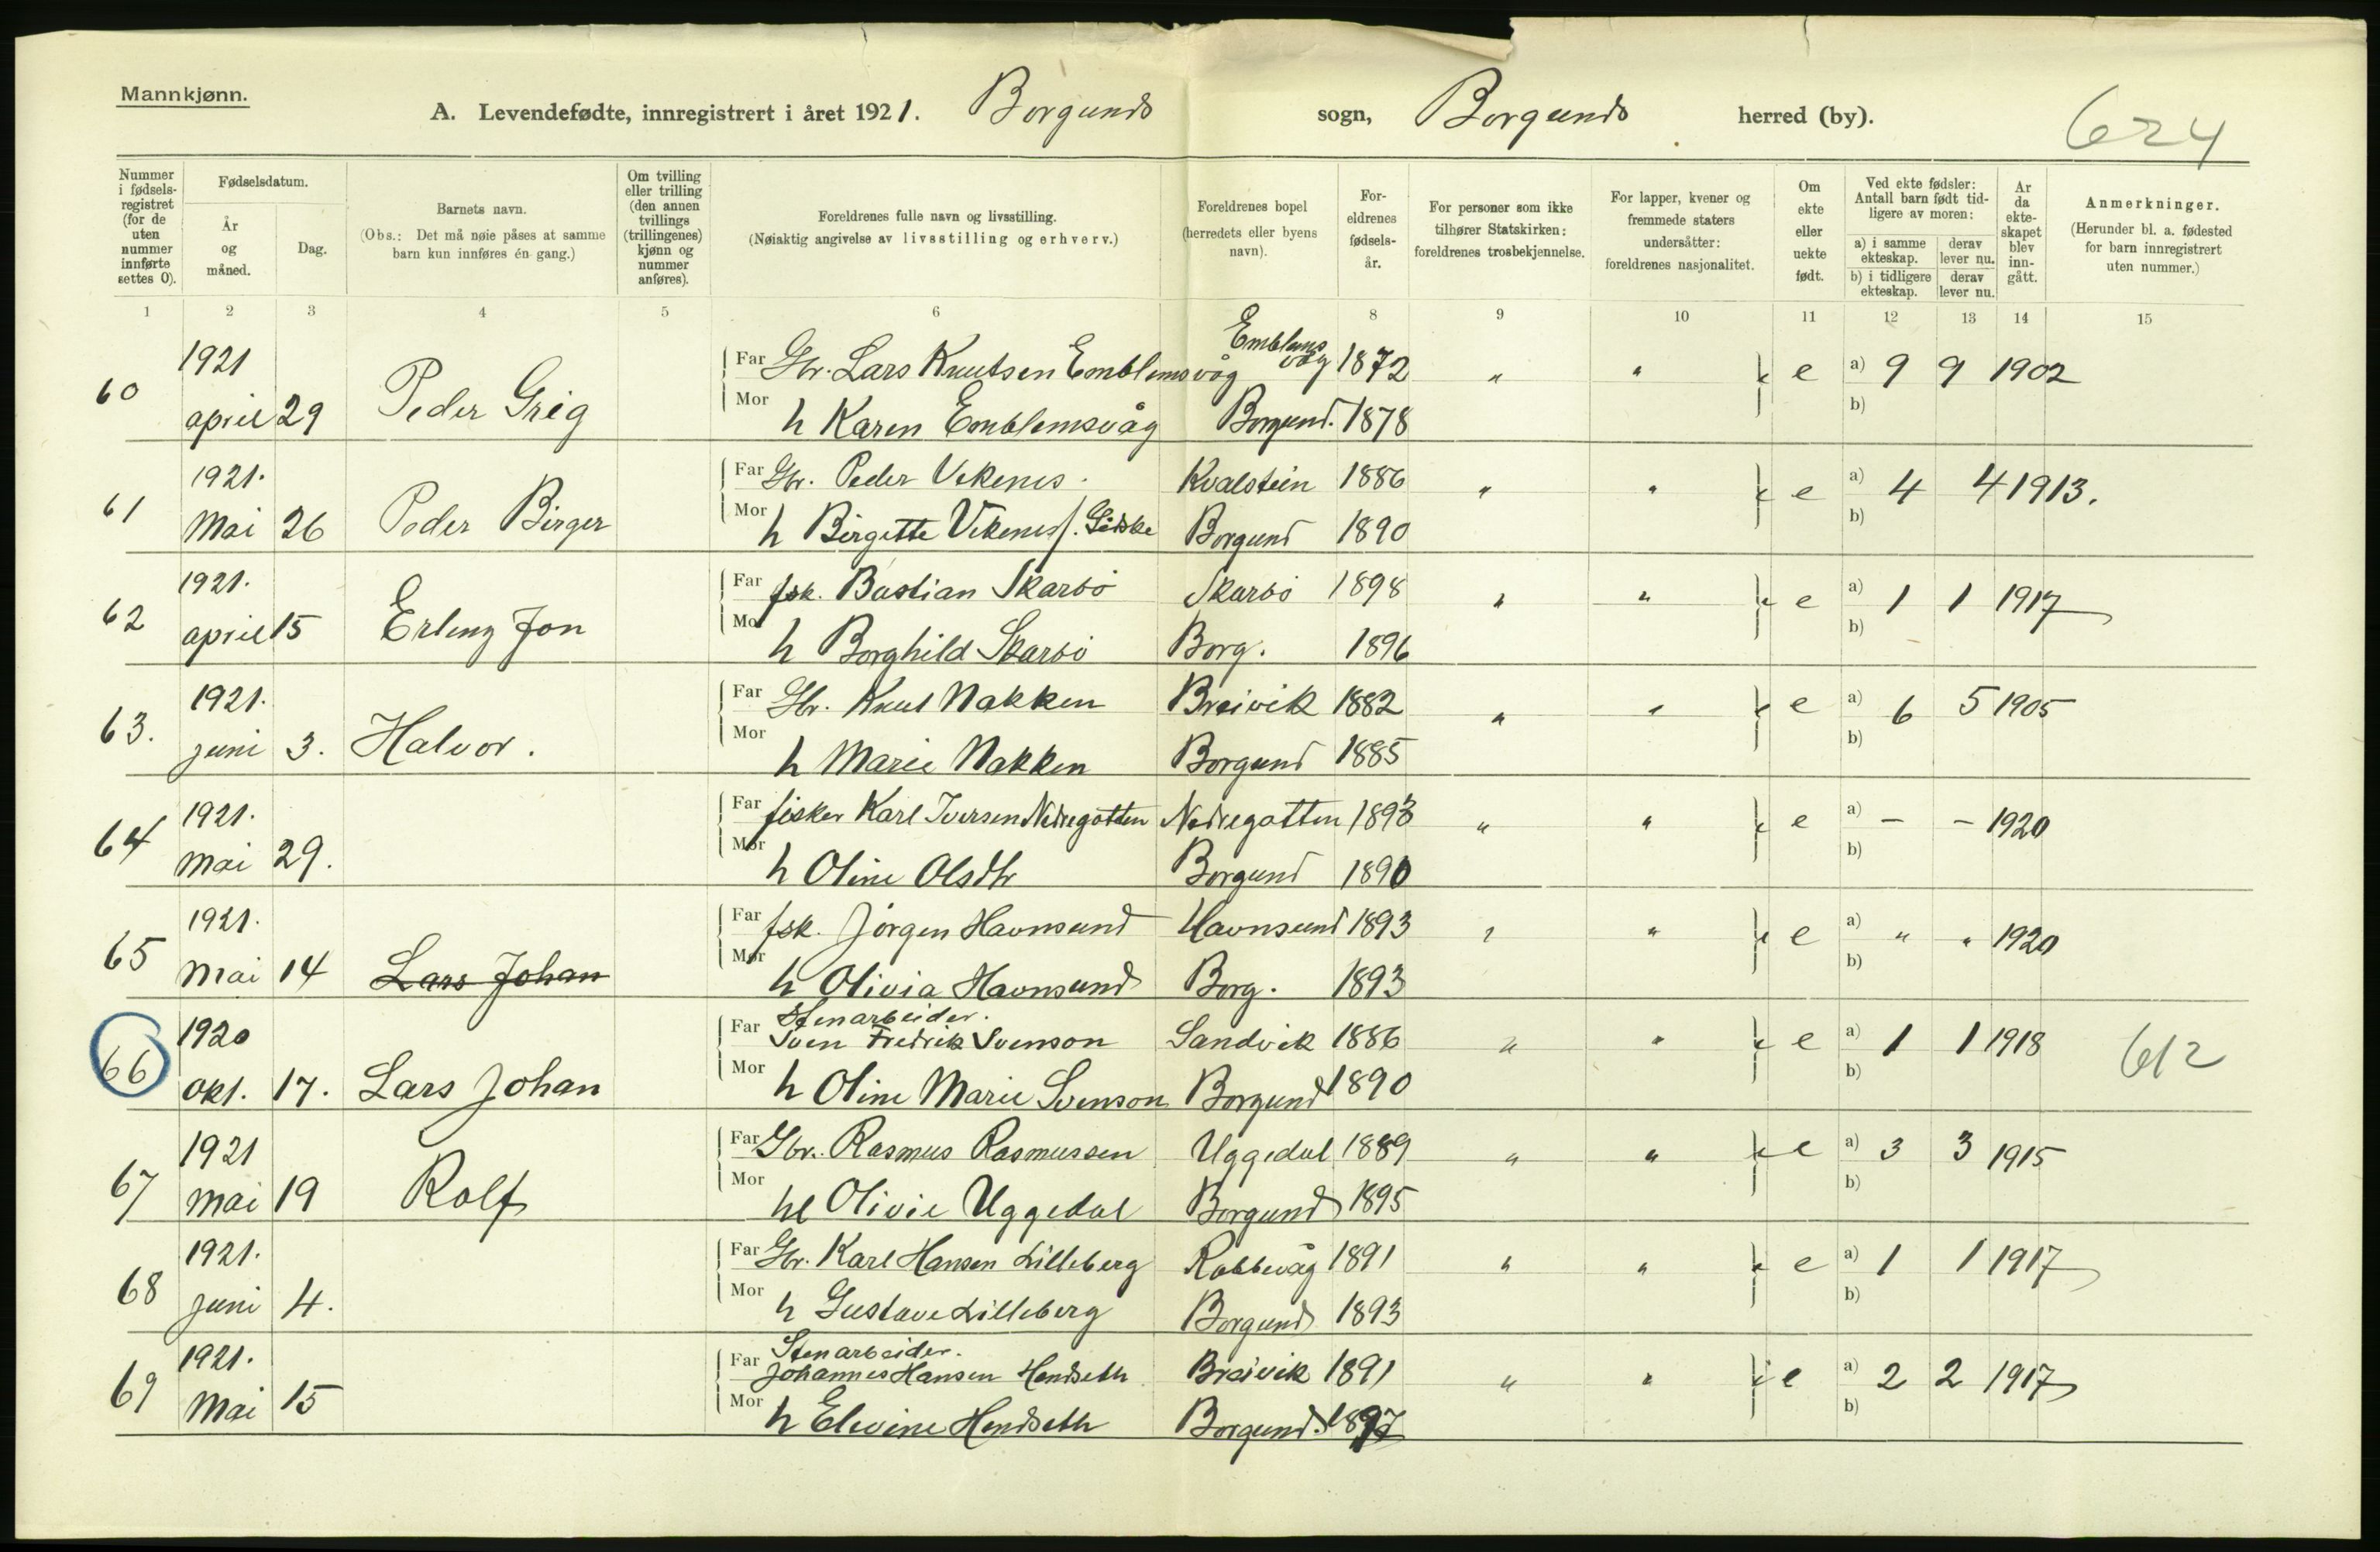 Mannkjønn.
A. Levendefødte, innregistrert i året 1921. Borgund sogn, Borgund herred (by). 624
Nummer i fødsels-registret (for de uten nummer innførte settes 0).
Fødselsdatum.
År og måned.
Dag.
Barnets navn.
(Obs.: Det må nøie påses at samme barn kun innføres én gang.)
Om tvilling eller trilling (den annen tvillings (trillingenes) kjønn og nummer anføres).
Foreldrenes fulle navn og livsstilling.
(Nøiaktig angivelse av livsstilling og erhverv.)
Foreldrenes bopel (herredets eller byens navn).
For-eldrenes fødsels-år.
For personer som ikke tilhører Statskirken: foreldrenes trosbekjennelse.
For lapper, kvener og fremmede staters undersåtter: foreldrenes nasjonalitet.
Om ekte eller uekte født.
Ved ekte fødsler: Antall barn født tid-ligere av moren:
a) i samme ekteskap.
derav lever nu.
b) i tidligere ekteskap.
derav lever nu.
År da ekte-skapet blev inn-gått.
Anmerkninger.
(Herunder bl. a. fødested for barn innregistrert uten nummer.)
1 2 3 4 5 6 8 9 10 11 12 13 14 15
1921 Far Gbr. Lars Knutsen Emblemsvåg Emblemsvåg 1872 " " e a) 9 9 1902
60 april 29 Peder Grig Mor h Karen Emblemsvåg Borgund. 1878 b)
1921. Far Gbr. Peder Vekenes. Kvalstein 1886 " " e a) 4 4 1913.
61 Mai 26 Peder Birger Mor h Birgitte Vekenes f. Giske Borgund 1890 b)
1921. Far fsk. Bastian Skarbö Skarbö 1898 " " e a) 1 1 1917
62 april 15 Erling Jon Mor h Borghild Skarbö Borg. 1896 b)
1921. Far Gbr. Knut Nakken Breivik 1882 " " e a) 6 5 1905
63. juni 3. Halvor. Mor h Marie Nakken Borgund 1885 b)
1921. Far fisker Karl Iversen Nedregotten Nedregotten 1893 " " e a) - - 1920
64 Mai 29. Mor h Oline Olsdtr Borgund 1890 b)
1921. Far fsk. Jörgen Havnsund Havnsund 1893 " " e a) " " 1920
65 Mai 14 Lars Johan Mor h Olivia Havnsund Borg. 1893 b)
Stenarbeider.
1920 Far Sven Fredrik Svenson Sandvik 1886 " " e a) 1 1 1918 612
66 okt. 17. Lars Johan Mor h Oline Marie Svenson Borgund 1890 b)
1921 Far Gbr. Rasmus Rasmussen Uggedal 1889 " " e a) 3 3 1915
67 Mai 19 Rolf Mor h Olivie Uggedal Borgund 1895 b)
1921. Far Gbr. Karl Hansen Lilleberg Rabbevåg 1891 " " e a) 1 1 1917
68 juni 4. Mor h Gustave Lilleberg Borgund 1893 b)
Stenarbeider.
1921. Far Johannes Hansen Hendseth Breivik 1891 " " e a) 2 2 1917
69 Mai 15 Mor h Elevine Hendseth Borgund. b)